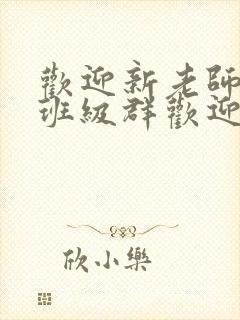 歡迎新老師
班級群歡迎
欣小樂